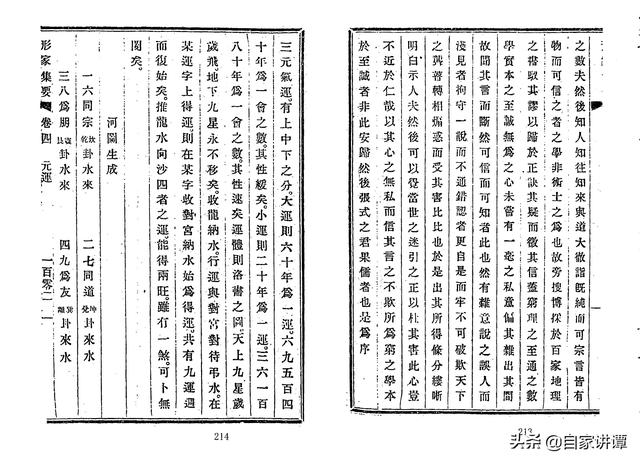 之數夫然後知人知往知來與道大徹詣旣純而可宗言皆有
物而可信之者之學非術士之爲也故旁搜博採於百家地理
之書取其謬以歸於正訣其疑而徵其信蓋窮理之至通之數
學實本之至誠無爲之心未嘗有一毫之私意偏其雜出其間
故聞其言而斷然可信而可知者此也然有雜意說之誤人而
淺見者拘守一說而不通錯認者更自是而牢不可破欺天下
之與普轉相煽惑而受其害比比也於是出其所得條分縷晰
明白示人夫然後可以覺當世之迷引之正以杜其害此心豈
不近於仁哉以其心之無私而信其言之不欺所爲窮之學本
於至誠者非此安歸然後張式之君果儒者也是爲序
213
三元氣運。有上中下之分。大運則六十年爲一運。六九五百四
十年爲一會之數。其性緩矣。小運則二十年爲一運。三六一百
八十年爲一會之數。其性速矣。運體則洛書之圖。天上九星歲
歲飛。地下九星永不移矣。收龍納水。行運與對宮對待弔水。在
某運字上得運。則在某字收對宮納水始爲得運。共有九運週
而復始矣。推龍水向沙四者之運。龍得兩旺。雖有一煞。可卜無
閡矣。
河圖生成
一六同宗坎乾卦水來 二七同道坤兌卦來水
三八爲朋震艮卦水來 四九爲友巽離卦來水
形家集要 卷四 元運 一百零二
214
头条 @自家讲谭